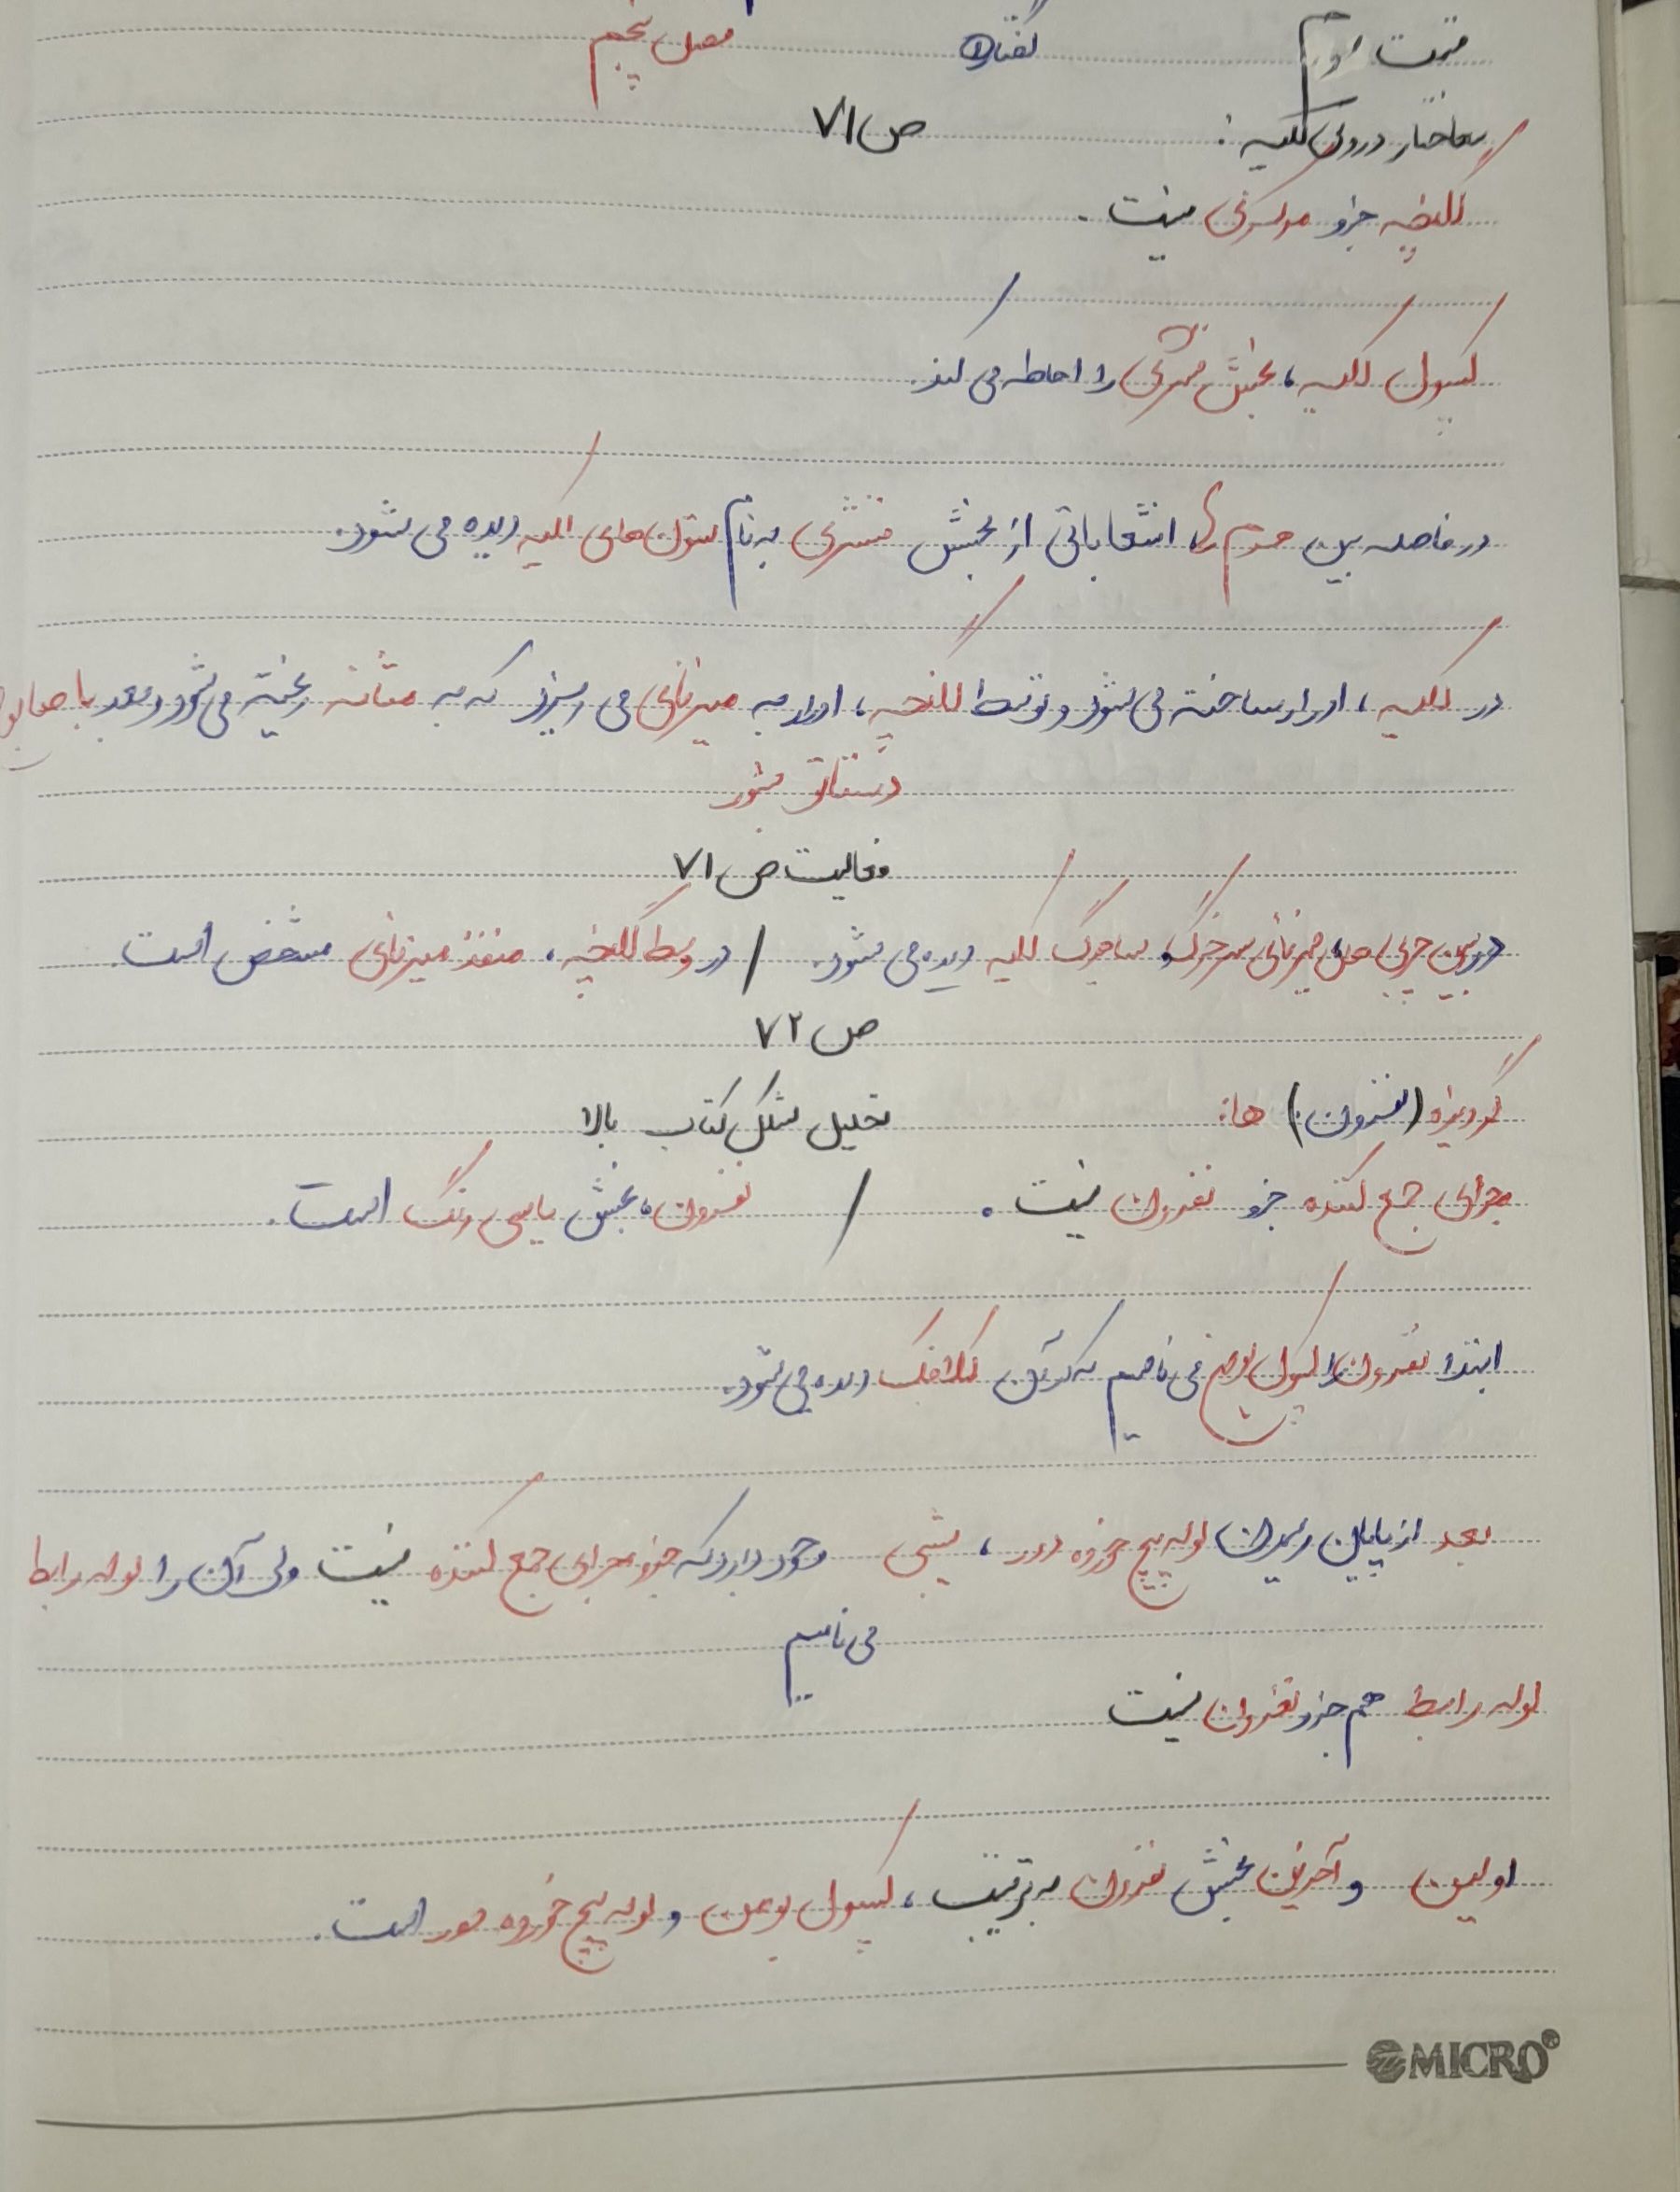 قسمت دوم گفتار ۱ فصل پنجم
ساختار درونی کلیه: ص ۷۱
لگنچه جزو مرکزی نیست.
کپسول کلیه، بخش قشری را احاطه می کند.
در فاصله بین هرم ها، انشعاباتی از بخش قشری به نام ستون های کلیه دیده می شود.
در کلیه، ادرار ساخته می شود و توسط لگنچه، ادرار به میزنای می ریزد که به مثانه ریخته می شود و بعد با
فعالیت ص ۷۱
در بین چربی های میزنای سرخرگ و سیاهرگ کلیه دیده می شود. / در وسط لگنچه، منفذ میزنای مشخص است.
ص ۷۲
گردیزه (نفرون) ها: تحلیل شکل کتاب بالا
مجرای جمع کننده جزو نفرون نیست. / نفرون، بخش یاسی رنگ است.
ابتدا نفرون را کپسول بومن می نامیم که در آن کلافک دیده می شود.
بعد از پایان رسیدن لوله پیچ خورده دور، بخشی وجود دارد که جزو مجرای جمع کننده نیست ولی آن را لوله رابط
می نامیم
لوله رابط هم جزو نفرون نیست
اولین و آخرین بخش نفرون به ترتیب، کپسول بومن و لوله پیچ خورده دور است.
MICRO®